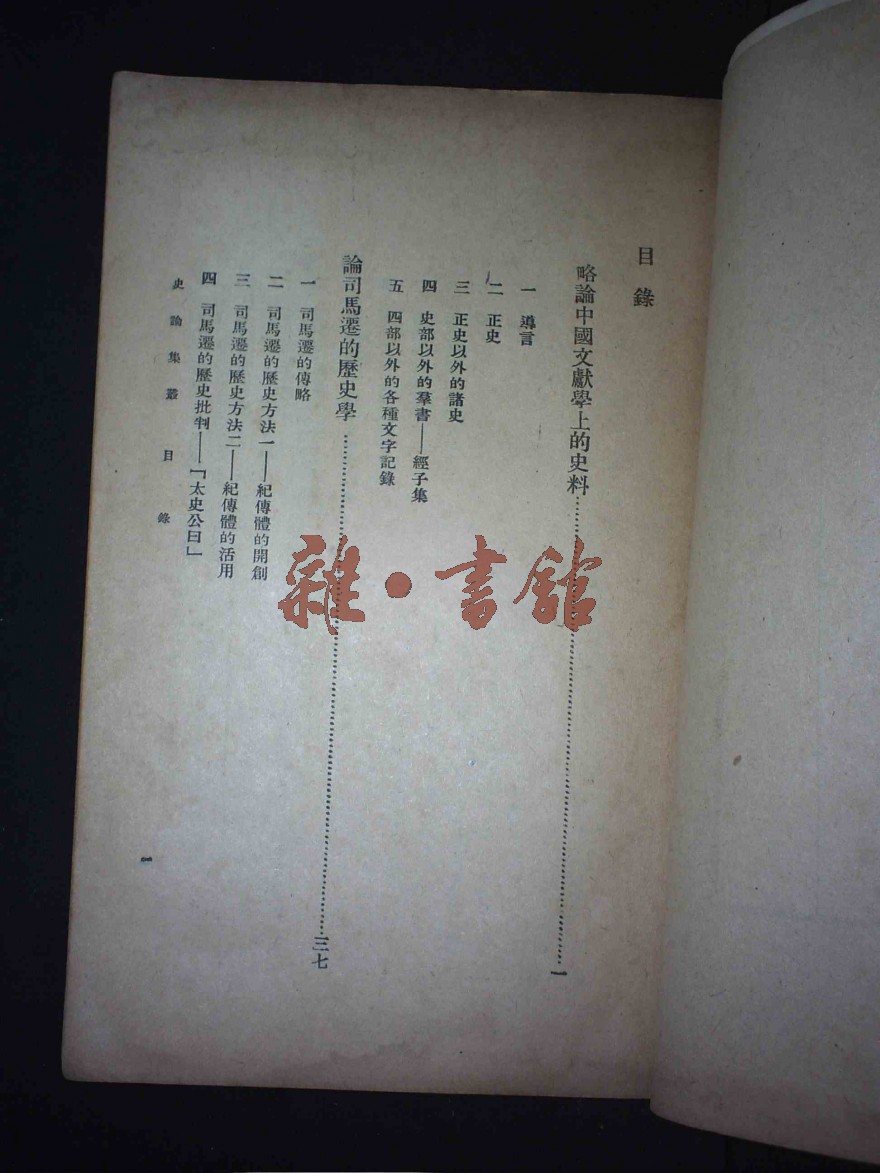 目錄
略論中國文獻學上的史料……一
一 導言
二 正史
三 正史以外的諸史
四 史部以外的羣書——經子集
五 四部以外的各種文字記錄
論司馬遷的歷史學……三七
一 司馬遷的傳略
二 司馬遷的歷史方法一——紀傳體的開創
三 司馬遷的歷史方法二——紀傳體的活用
四 司馬遷的歷史批判——「太史公曰」
史論集叢 目錄
一
雜·書館